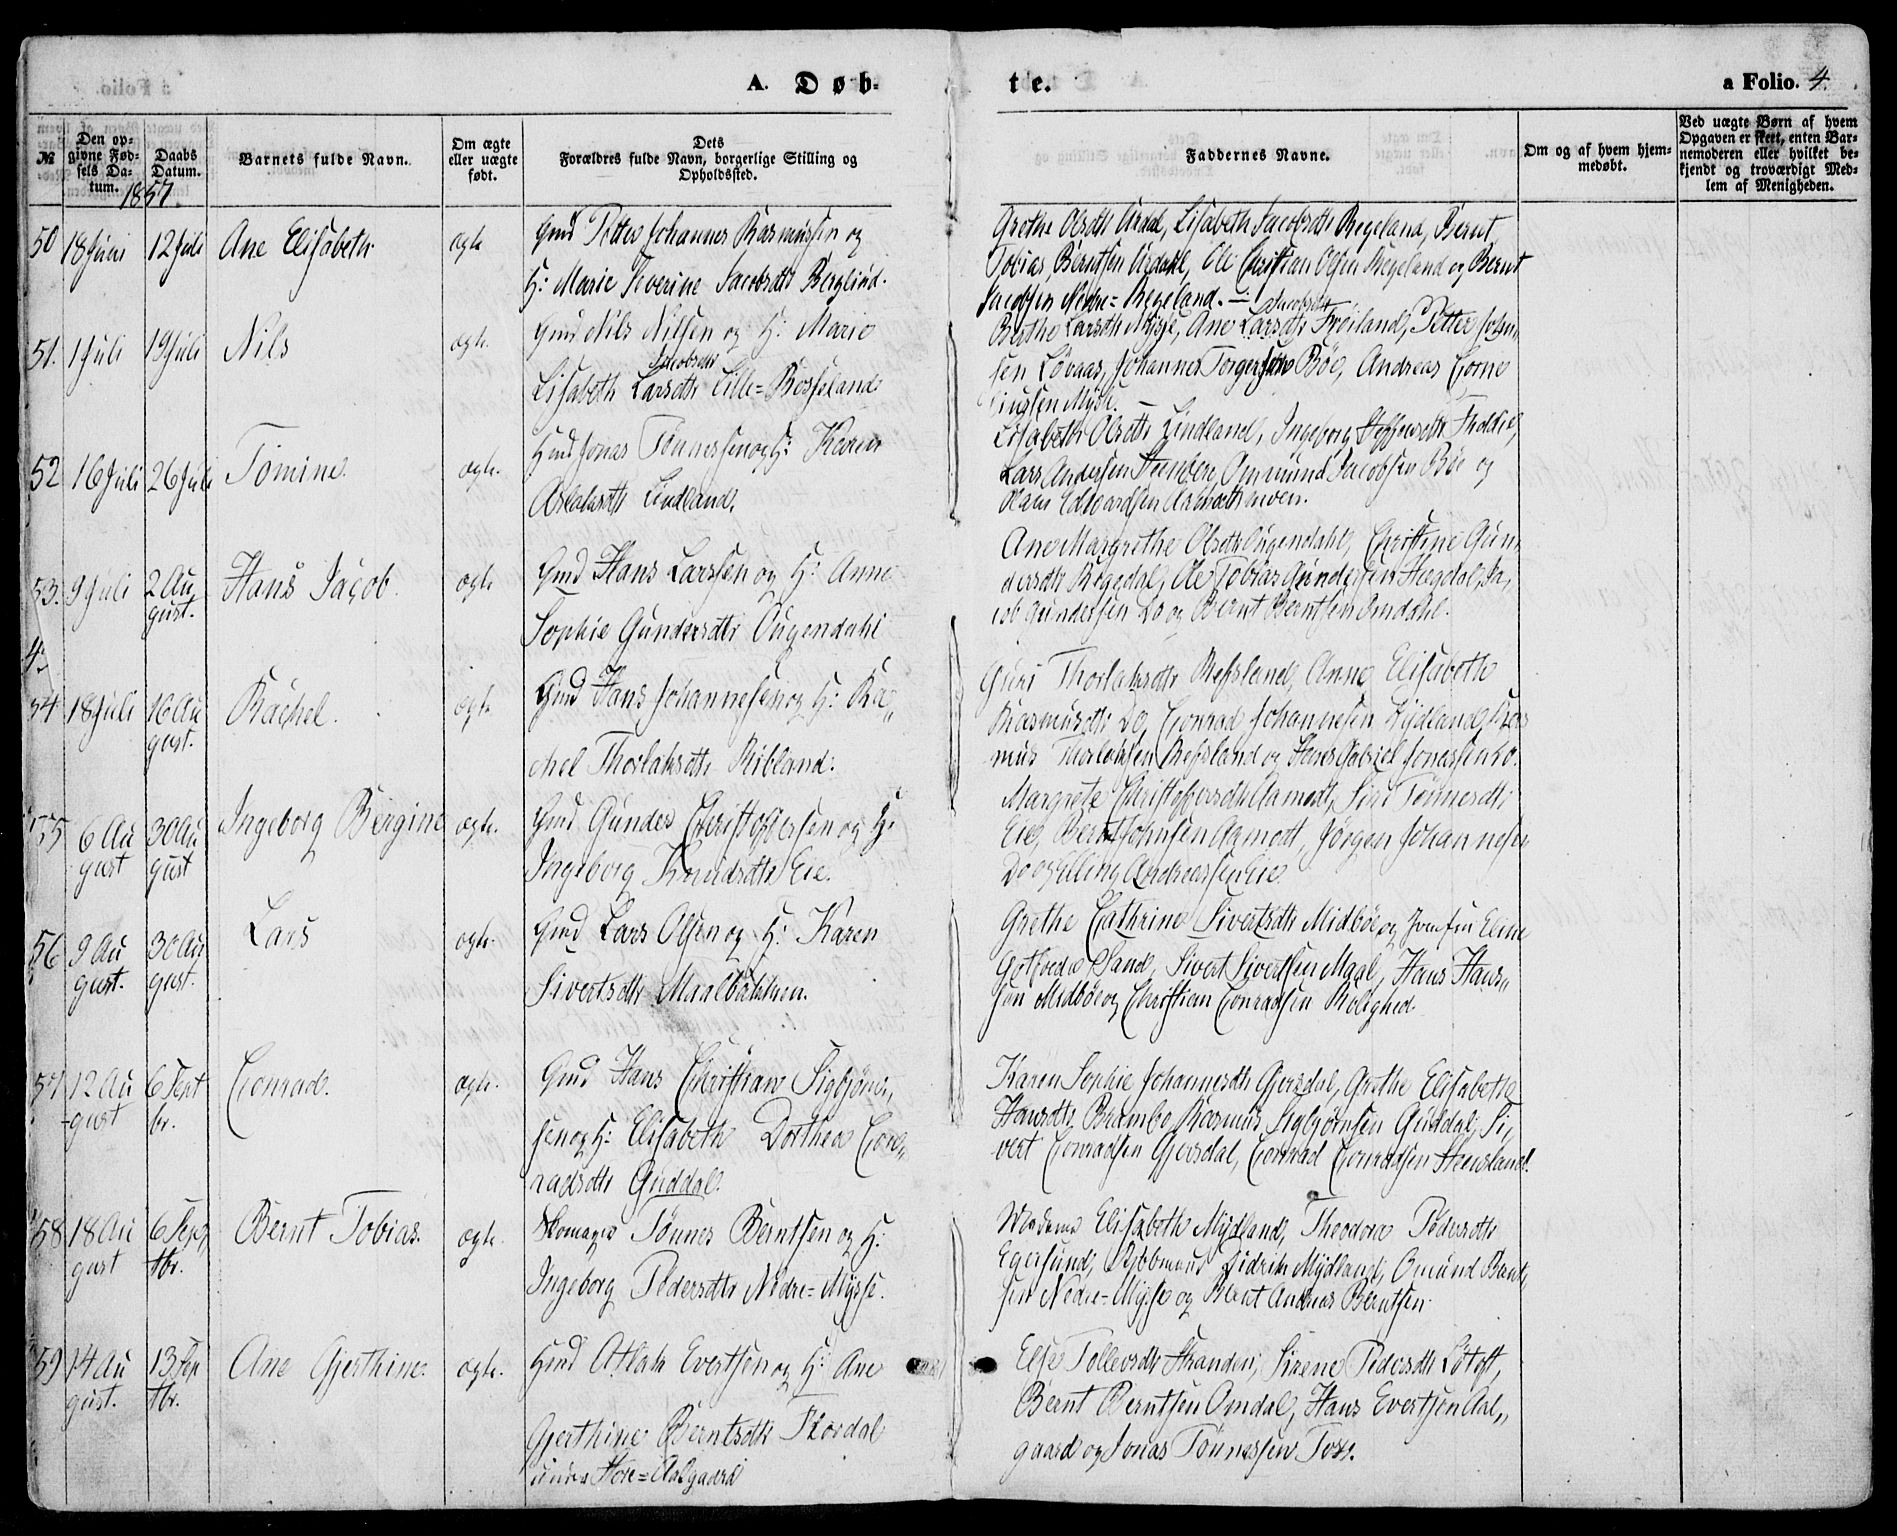 A. Døb-
te.
a Folio. 4.
№
Den op-
givne Fød-
sels Da-
tum.
Daabs
Datum.
1857.
Barnets fulde Navn.
Om ægte
eller uægte
født.
Dets
Forældres fulde Navn, borgerlige Stilling og
Opholdssted.
Faddernes Navne.
Om og af hvem hjem-
medøbt.
Ved uægte Børn af hvem
Opgaven er skeet, enten Bar-
nemoderen eller hvilket be-
kjendt og troværdigt Med-
lem af Menigheden.
50 18 Juni 12 Juli Ane Elisabeth ægte
Gmd Petter Johannes Rasmussen og
H: Marie Severine Jacobsdtr Berglund.
Grethe Olsdtr Ardal, Lisabeth Jacobsdtr Regeland, Bernt
Tobias Berntsen Årdahl, Ole Christian Olsen Regeland og Bernt
Jacobsen Nedre=Regeland.
51. 1 Juli 19 Juli Nils ægte.
Gmd Nils Nilsen og H: Marie
Jacobsdtr
Lisabeth Larsdtr Lille=Rosseland
Jacobsdtr
Berthe Larsdtr Mysse, Ane Larsdtr Frøiland, Petter
sen Løvaas, Johannes Torgersen Bøe, Andreas Corne
liussen Mysse.
52 16 Juli 26 Juli Tomine. ægte.
Hmd Jonas Tønnessen og H: Karen
Aslaksdtr Lindland.
Lisabeth Olsdtr Lindland, Ingeborg
Lars Andersen Steenberg, Ommund Jacobsen Bøe og
Edvardsen
53. 9 Juli 2 Au
gust. Hans Jacob. ægte
Gmd Hans Larssen og H: Anne
Sophie Gundersdtr Ougendahl
Ane Margrethe Olsdtr Ougendahl, Christine Gun
dersdtr Regedal, Ole Tobias Gundersen Hegdal, Ja
cob Gundersen Do og Bernt Berntsen Omdahl.
54 18 Juli 16 Au
gust. Rachel. ægte
Gmd Hans Johannesen og H: Ra
chel Thorlaksdtr Ribland.
Guri Thorlaksdtr Refsland, Anne Elisabeth
Rasmusdtr Do, Conrad Johannesen Rydland, Ras
mus Thorlaksen Refsland og Hans Gabriel Jonassen Do.
55 6 Au
gust 30 Au
gust Ingeborg Bergine ægte.
Gmd Gunder Christoffersen og H:
Ingeborg Knudsdtr Eie.
Margrete Christoffersdtr Aamodt, Siri Tønnesdtr
Eie, Bernt Johnsen Aamodt, Jørgen Johannesen
Do og Elling Andreassen Eie
56 9 Au
gust. 30 Au
gust. Lars ægte.
Gmd Lars Olsen og H: Karen
Sivertsdtr Maalbakken.
Grethe Cathrine Sivertsdtr Midbøe og Josefin Eline
Gotfreda Sand, Sivert Sivertsen Maal, Hans Hans
sen Midbøe og Christian Conradsen Rolighed.
57 12 Au
gust 6 Sept
br. Conrad. ægte.
Gmd Hans Christian Sigbjørn,
sen og H: Elisabeth Dorthea Con,
radsdtr Guddal.
Karen Sophie Johannesdtr Gjersdal, Grethe Elisabeth
Hansdtr Brambo, Rasmus Sigbjørnsen Guddal, Si,
vert Conradsen Gjersdal, Conrad Conradsen Steensland.
58 18 Au
gust 6 Sep,
tbr. Bernt Tobias. ægte.
Skomager Tønnes Berntsen og H:
Ingeborg Pedersdtr Nedre=Mysse.
Madame Elisabeth Mydland, Theodore Pedersdtr
Egersund, Didrik Mydland, Omund Bernt
sen Nedre=Mysse og Bernt Andreas Berntsen
59 14 Au
gust. 13 Sep
tbr. Ane Gjerthine. ægte.
Hmd Atlak Evertsen og H: Ane
Gjerthine Berntsdtr Skordal
under Store=Aalgaard
Else Tollevsdtr Stranden, Sirene Pedersdtr Løtoft,
Bernt Berntsen Omdal, Hans Evertsen Aal,
gaard og Jonas Tønnessen Toss.